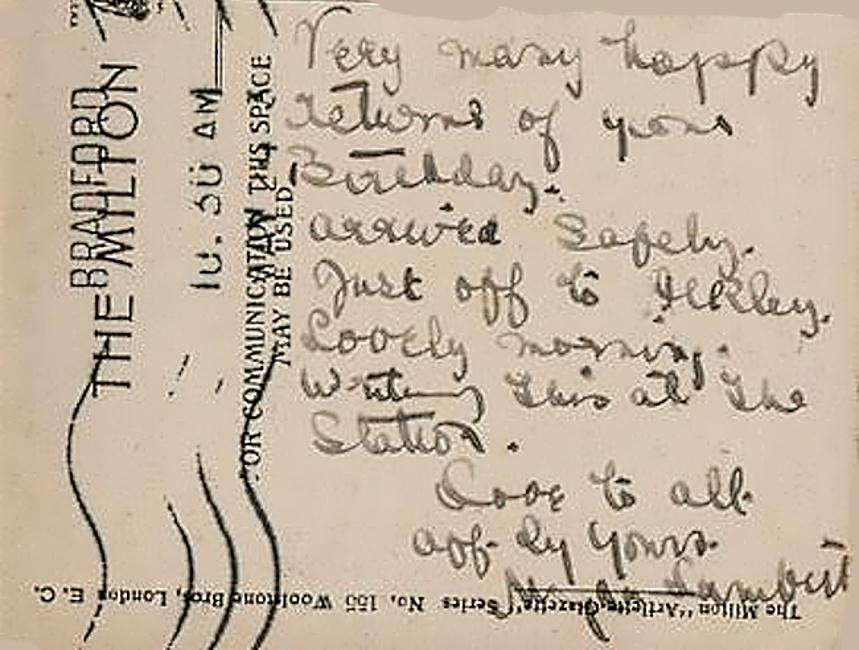 Very many happy
returns of your
Birthday.
arrived Safely.
Just off to Ilkley.
Lovely morning.
Writing this at the
Station.
Love to all
aff-ly yours.
Lambert
BRADFORD
10.30 AM
THE MILTON
FOR COMMUNICATION THIS SPACE
MAY BE USED
The Milton "Artlette-Glazette" Series No. 155 Woolstone Bros, London E. C.